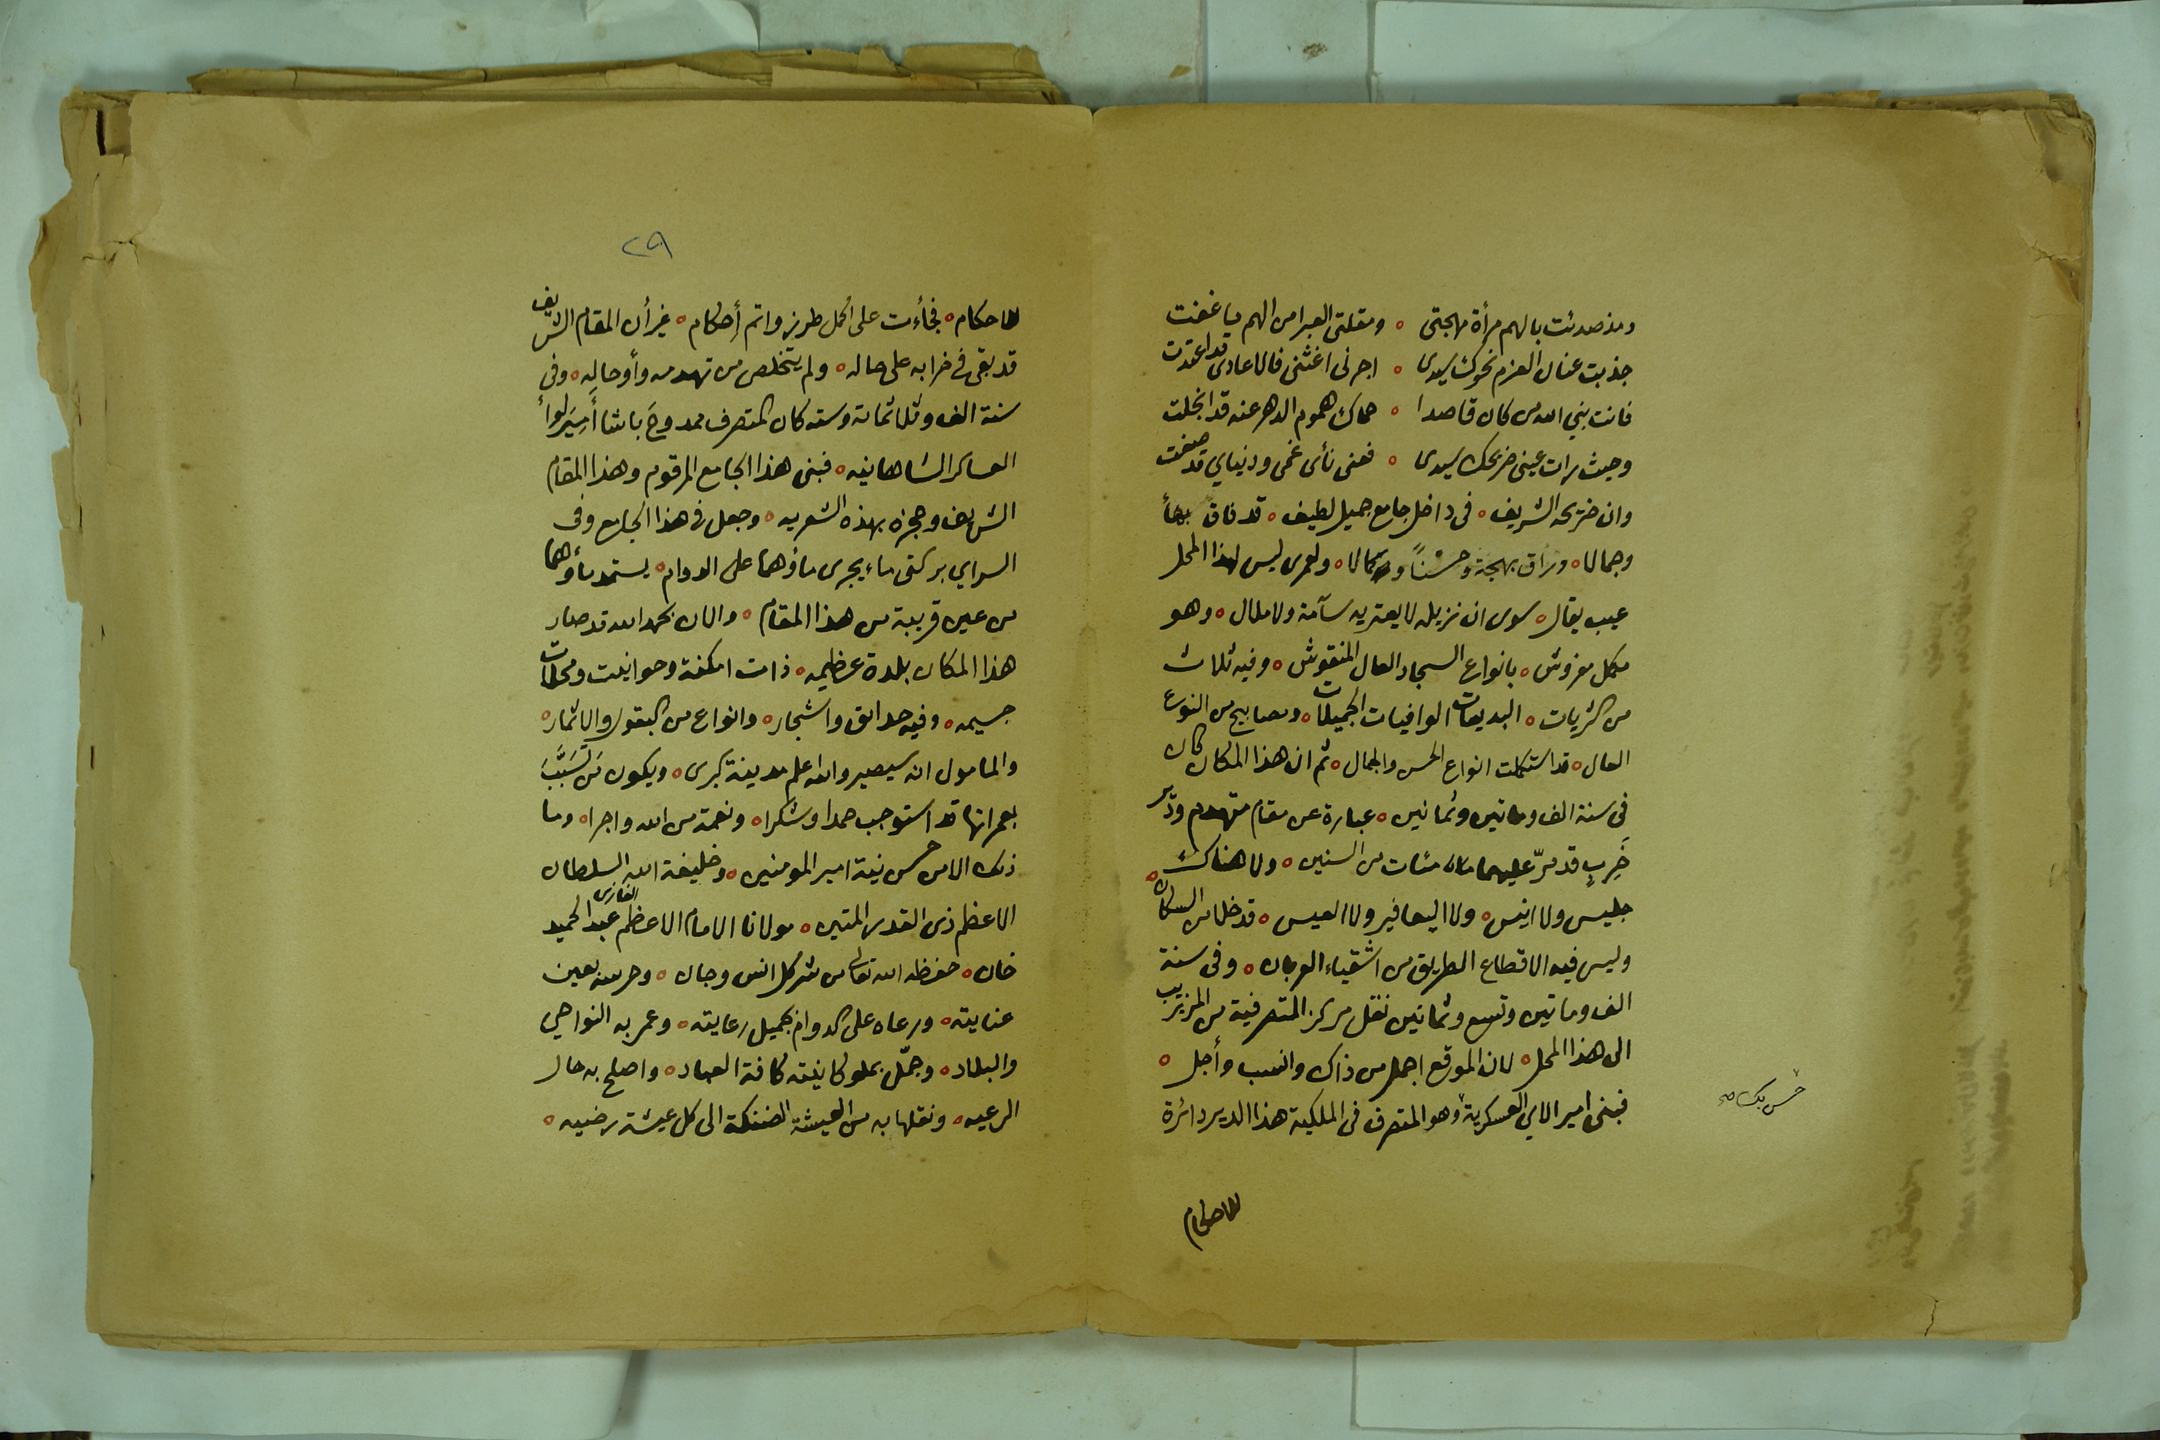 ومذ صدئت بالهم مرأة مهجتي ○ ومقلتي العبرا من الهم ما غفت
جذبت عنان العزم نحوك سيدي ○ اجرني اغثني فالاعادي قد اعتدت
فانت بني الله من كان قاصدا ○ حماك هموم الدهر عنه قد انجلت
وحيث رات عيني ضريحك سيدي ○ فعني نأى غمي ودنياي قد صفت
وان ضريحه الشريف ○ في داخل جامع جميل لطيف ○ قد فاق بهأ
وجمالا ○ وراق بهجة وحسناً وكمالا ○ ولعمري ليس لهذا المحل
عيب يقال ○ سوى ان نزيله لا يعتريه سآمة ولا ملال ○ وهو
مكمل مفروش ○ بانواع السجاد العال المنقوش ○ وفيه ثلاث
من الثريات ○ البديعات الوافيات الجميلات ○ ومصابيح من النوع
العال ○ قد استكملت انواع الحسن والجمال ○ ثم ان هذا المكان كان
في سنة الف ومائتين وثمانين ○ عبارة عن مقام متهدم ودير
خَرِبٍ قد مرّ عليهما مئات من السنين ○ ولا هناك
جليس ولا انيس ○ ولا اليعافير ولا العيس ○ قد خلا من السكان ○
وليس فيه الا قطاع الطريق من اشقياء العربان ○ وفي سنة
الف ومائتين وتسع وثمانين نقل مركز المتصرفية من المزيريب
الى هذا المحل ○ لان الموقع اجمل من ذاك وانسب وأجل ○
فبنى امير الالاي العسكرية وهو المتصرف في الملكية هذا الدير دائرة
حسن بك صح
للاحكام
٢٩
للاحكام ○ فجأءت على اكمل طرز واتم أحكام ○ غير أن المقام الشريف
قد بقي في خرابه على حاله ○ ولم يتخلص من تهدمه وأوحاله ○ وفي
سنة الف وثلاثمائة وسته كان المتصرف ممدوح باشا أميرلوأ
العساكر الشاهانيه ○ فبنى هذا الجامع المرقوم وهذا المقام
الشريف وحجزه بهذه الشعريه ○ وجعل في هذا الجامع وفي
السراي بركتي ماء يجري مأؤهما على الدوام ○ يستمد مأؤهما
من عين قريبة من هذا المقام ○ والان بحمد الله قد صار
هذا المكان بلدة عظيمه ○ ذات امكنة وحوانيت ومحلات
جسيمه ○ وفيه حدائق واشجار ○ وانواع من البقول والاثمار ○
والمامول انه سيصير والله اعلم مدينة كبرى ○ ويكون مَن تَسَبَّبَ
بعمرانها قد استوجب حمدا وشكرا ○ ونعمة من الله واجرا ○ وما
ذلك الا من حسن نية امير المومنين ○ وخليفة الله السلطان
الاعظم ذي القدر المتين ○ مولانا الامام الاعظم الغازي عبد الحميد
خان ○ حفظه الله تعالى من شر كل انس وجان ○ وحرسه بعين
عنايته ○ ورعاه على الدوام بجميل رعايته ○ وعمر به النواحي
والبلاد ○ وجمّل بملوكانيته كافة العباد ○ واصلح به حال
الرعيه ○ ونقلها به من العيشة الضنكة الى كل عيشة رضيه ○